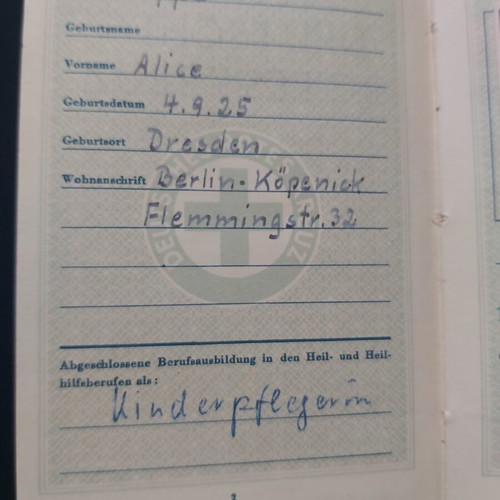 Geburtsname
Vorname Alice
Geburtsdatum 4.9.25
Geburtsort Dresden
Wohnanschrift Berlin-Köpenick
Flemmingstr. 32
Abgeschlossene Berufsausbildung in den Heil- und Heil-
hilfsberufen als:
Kinderpflegerin